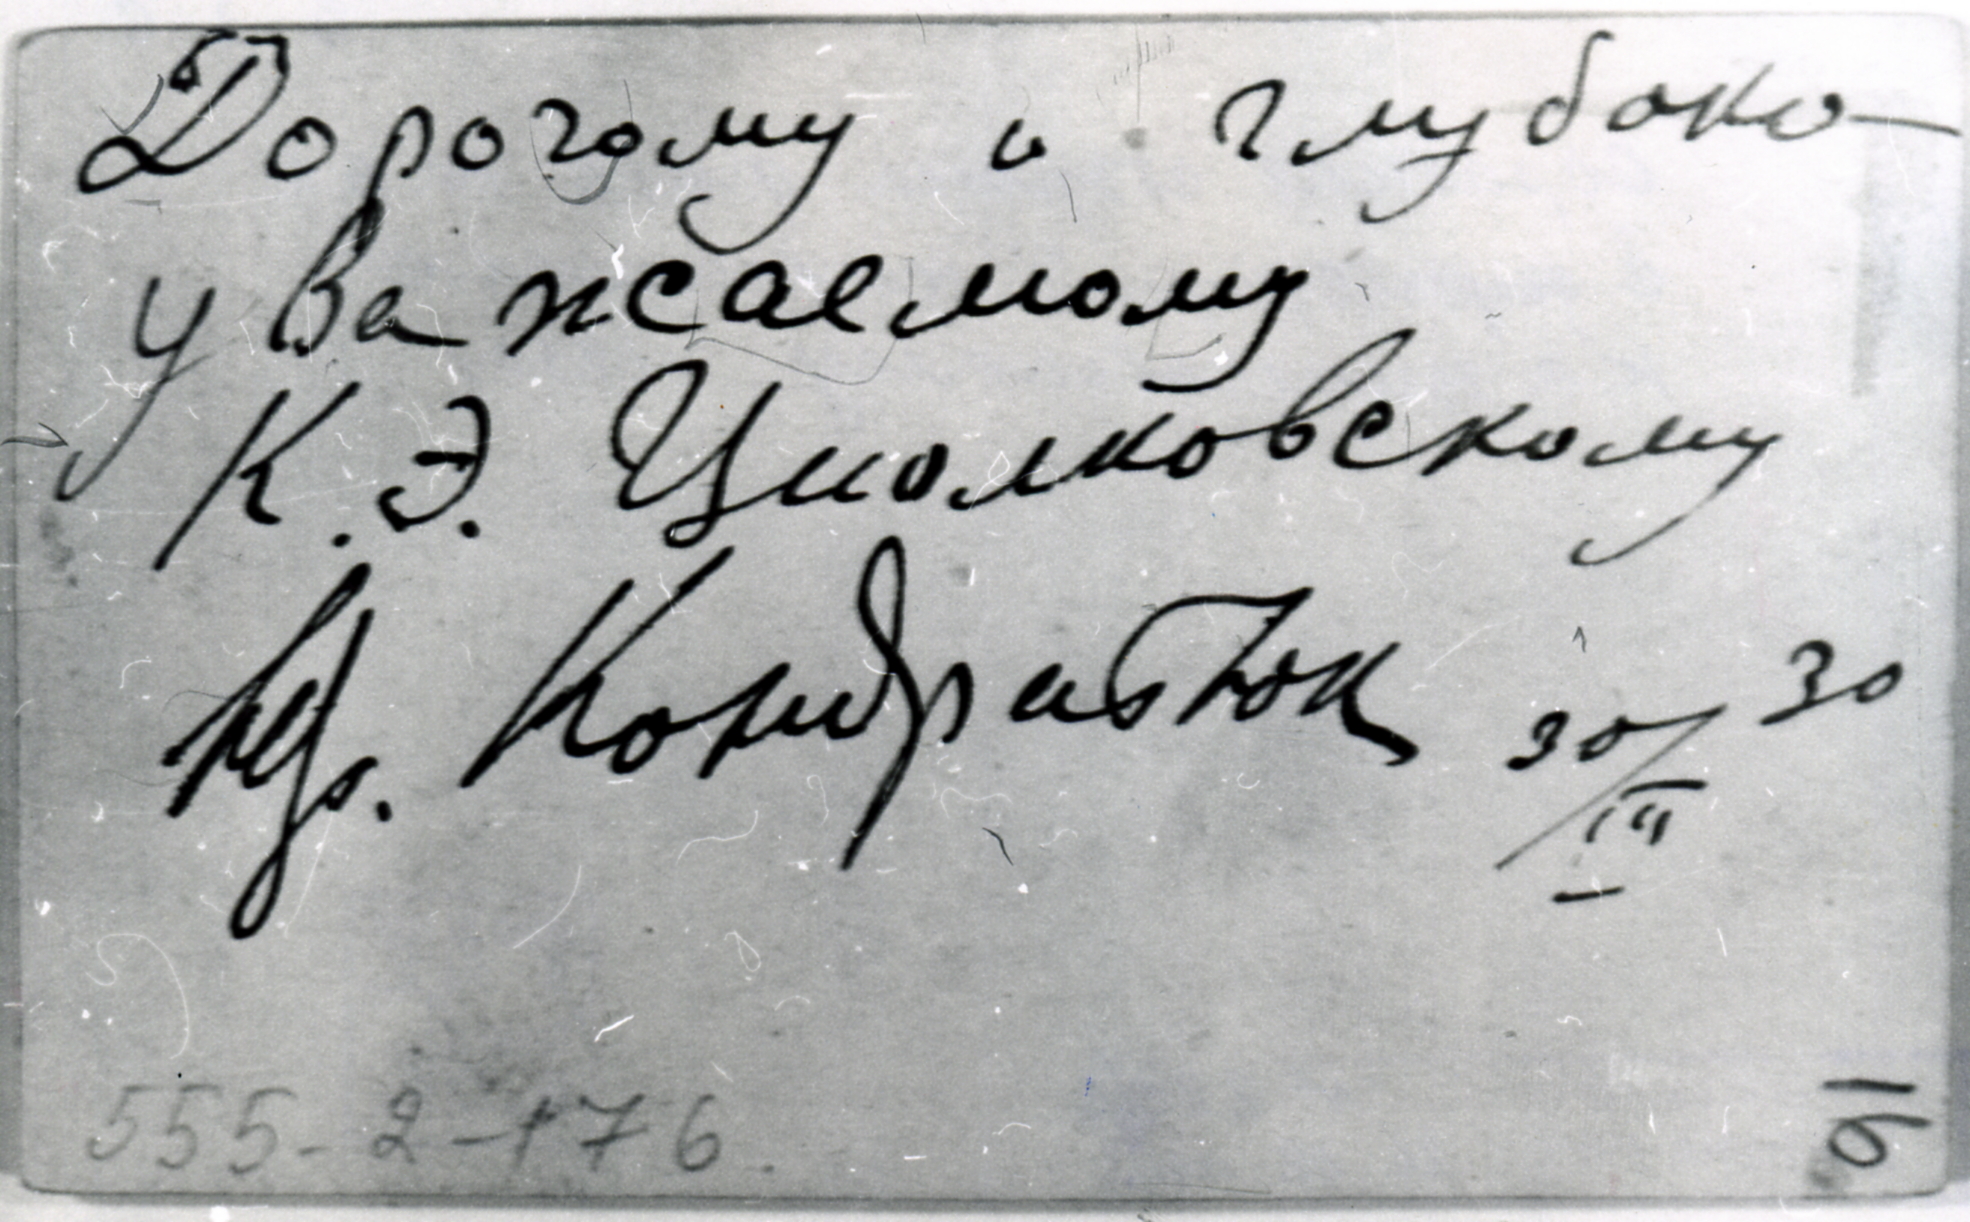 Дорогому и глубоко-
уважаемому
К.Э. Циолковскому
Юр. Кондратюк 30/III 30
555-2-176.
16